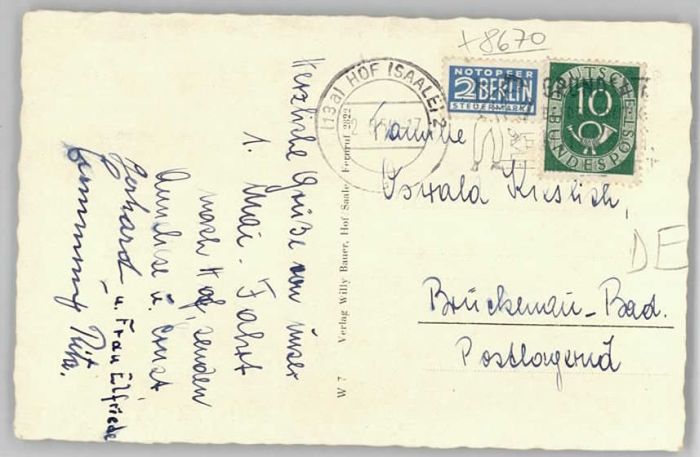 +8670
(13a) HOF (SAALE) 2
NOTOPFER
2 BERLIN
STEUERMARKE
DEUTSCHE
10
BUNDESPOST
Familie
Oswald Kieslich,
Brückenau-Bad.
Postlagernd
DE
W 7 Verlag Willy Bauer, Hof Saale, Fernruf 2822
Herzliche Grüße von unser
1. Mai-Fahrt
nach Hof, senden
Annliese u. Ernst
Gerhard u. Frau Elfriede